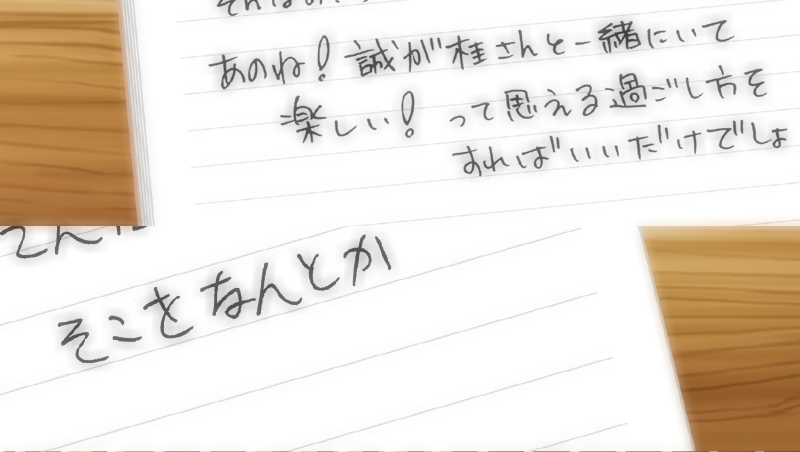 あのね！誠が桂さんと一緒にいて
楽しい！って思える過ごし方を
すればいいだけでしょ
そこをなんとか